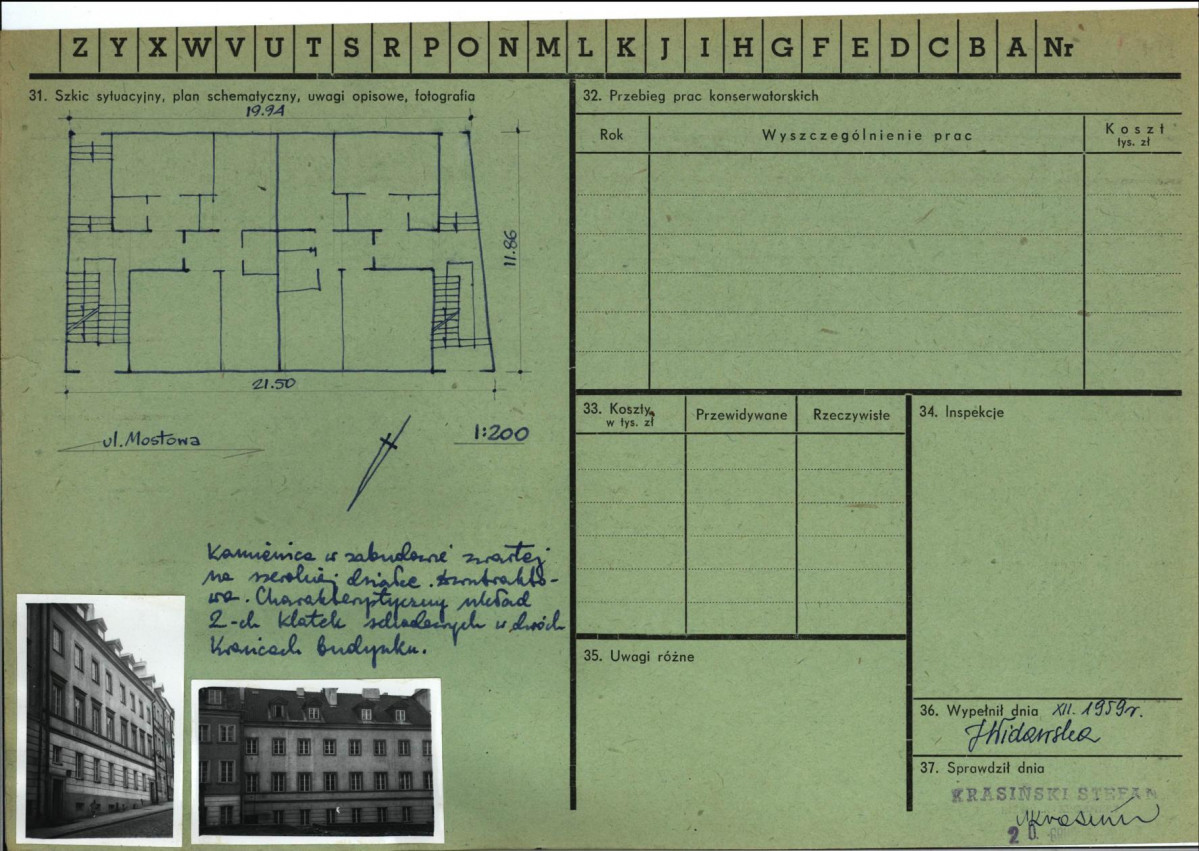 Z Y X W V U T S R P O N M L K J I H G F E D C B A Nr
31. Szkic sytuacyjny, plan schematyczny, uwagi opisowe, fotografia
19.94
11.86
21.50
ul. Mostowa
1:200
Kamienica w zabudowie zwartej
na szerokiej działce. Dwutrakto-
wa. Charakterystyczny układ
2-ch klatek schodowych w dwóch
krańcach budynku.
32. Przebieg prac konserwatorskich
Rok
Wyszczególnienie prac
Koszt
tys. zł
33. Koszty
w tys. zł
Przewidywane
Rzeczywiste
34. Inspekcje
35. Uwagi różne
36. Wypełnił dnia XII. 1959 r.
JWidawska
37. Sprawdził dnia
KRASIŃSKI STEFAN